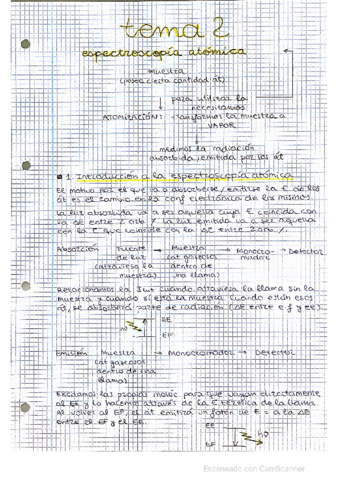 tema 2
espectroscopía atómica
muestra
(posee cierta cantidad át)
para utilizar la
necesitamos
ATOMIZACIÓN: transformar la muestra a
VAPOR
medimos la radiación
absorbida/emitida por los át
1. Introducción a la espectroscopía atómica
El motivo por el que va a absorberse/emitirse la E de los
át es el cambio en la conf electrónica de los mismos.
La luz absorbida va a ser aquella cuya E coincida con
la ΔE entre 2 orb / La luz emitida va a ser aquella
con la E que coincide con la ΔE entre 2 orb/.
Absorción Fuente de luz (atraviesa la muestra) → Muestra (át gaseosos dentro de una llama) → Monocromador → Detector
Relacionamos la I luz cuando atraviesa la llama sin la
muestra y cuando sí está la muestra. Cuando están esos
át, se absorberá parte de radiación (ΔE entre e f y ee).
EE
EF
Emisión Muestra (át gaseosos dentro de una llama) → Monocromador → Detector
Excitamos las propias moléc para que vayan directamente
al EE y lo hacemos através de la E térmica de la llama.
Al volver al EF, el át emitirá un fotón de E = a la ΔE
entre el EF y el EE.
EE
EF
hν
Escaneado con CamScanner